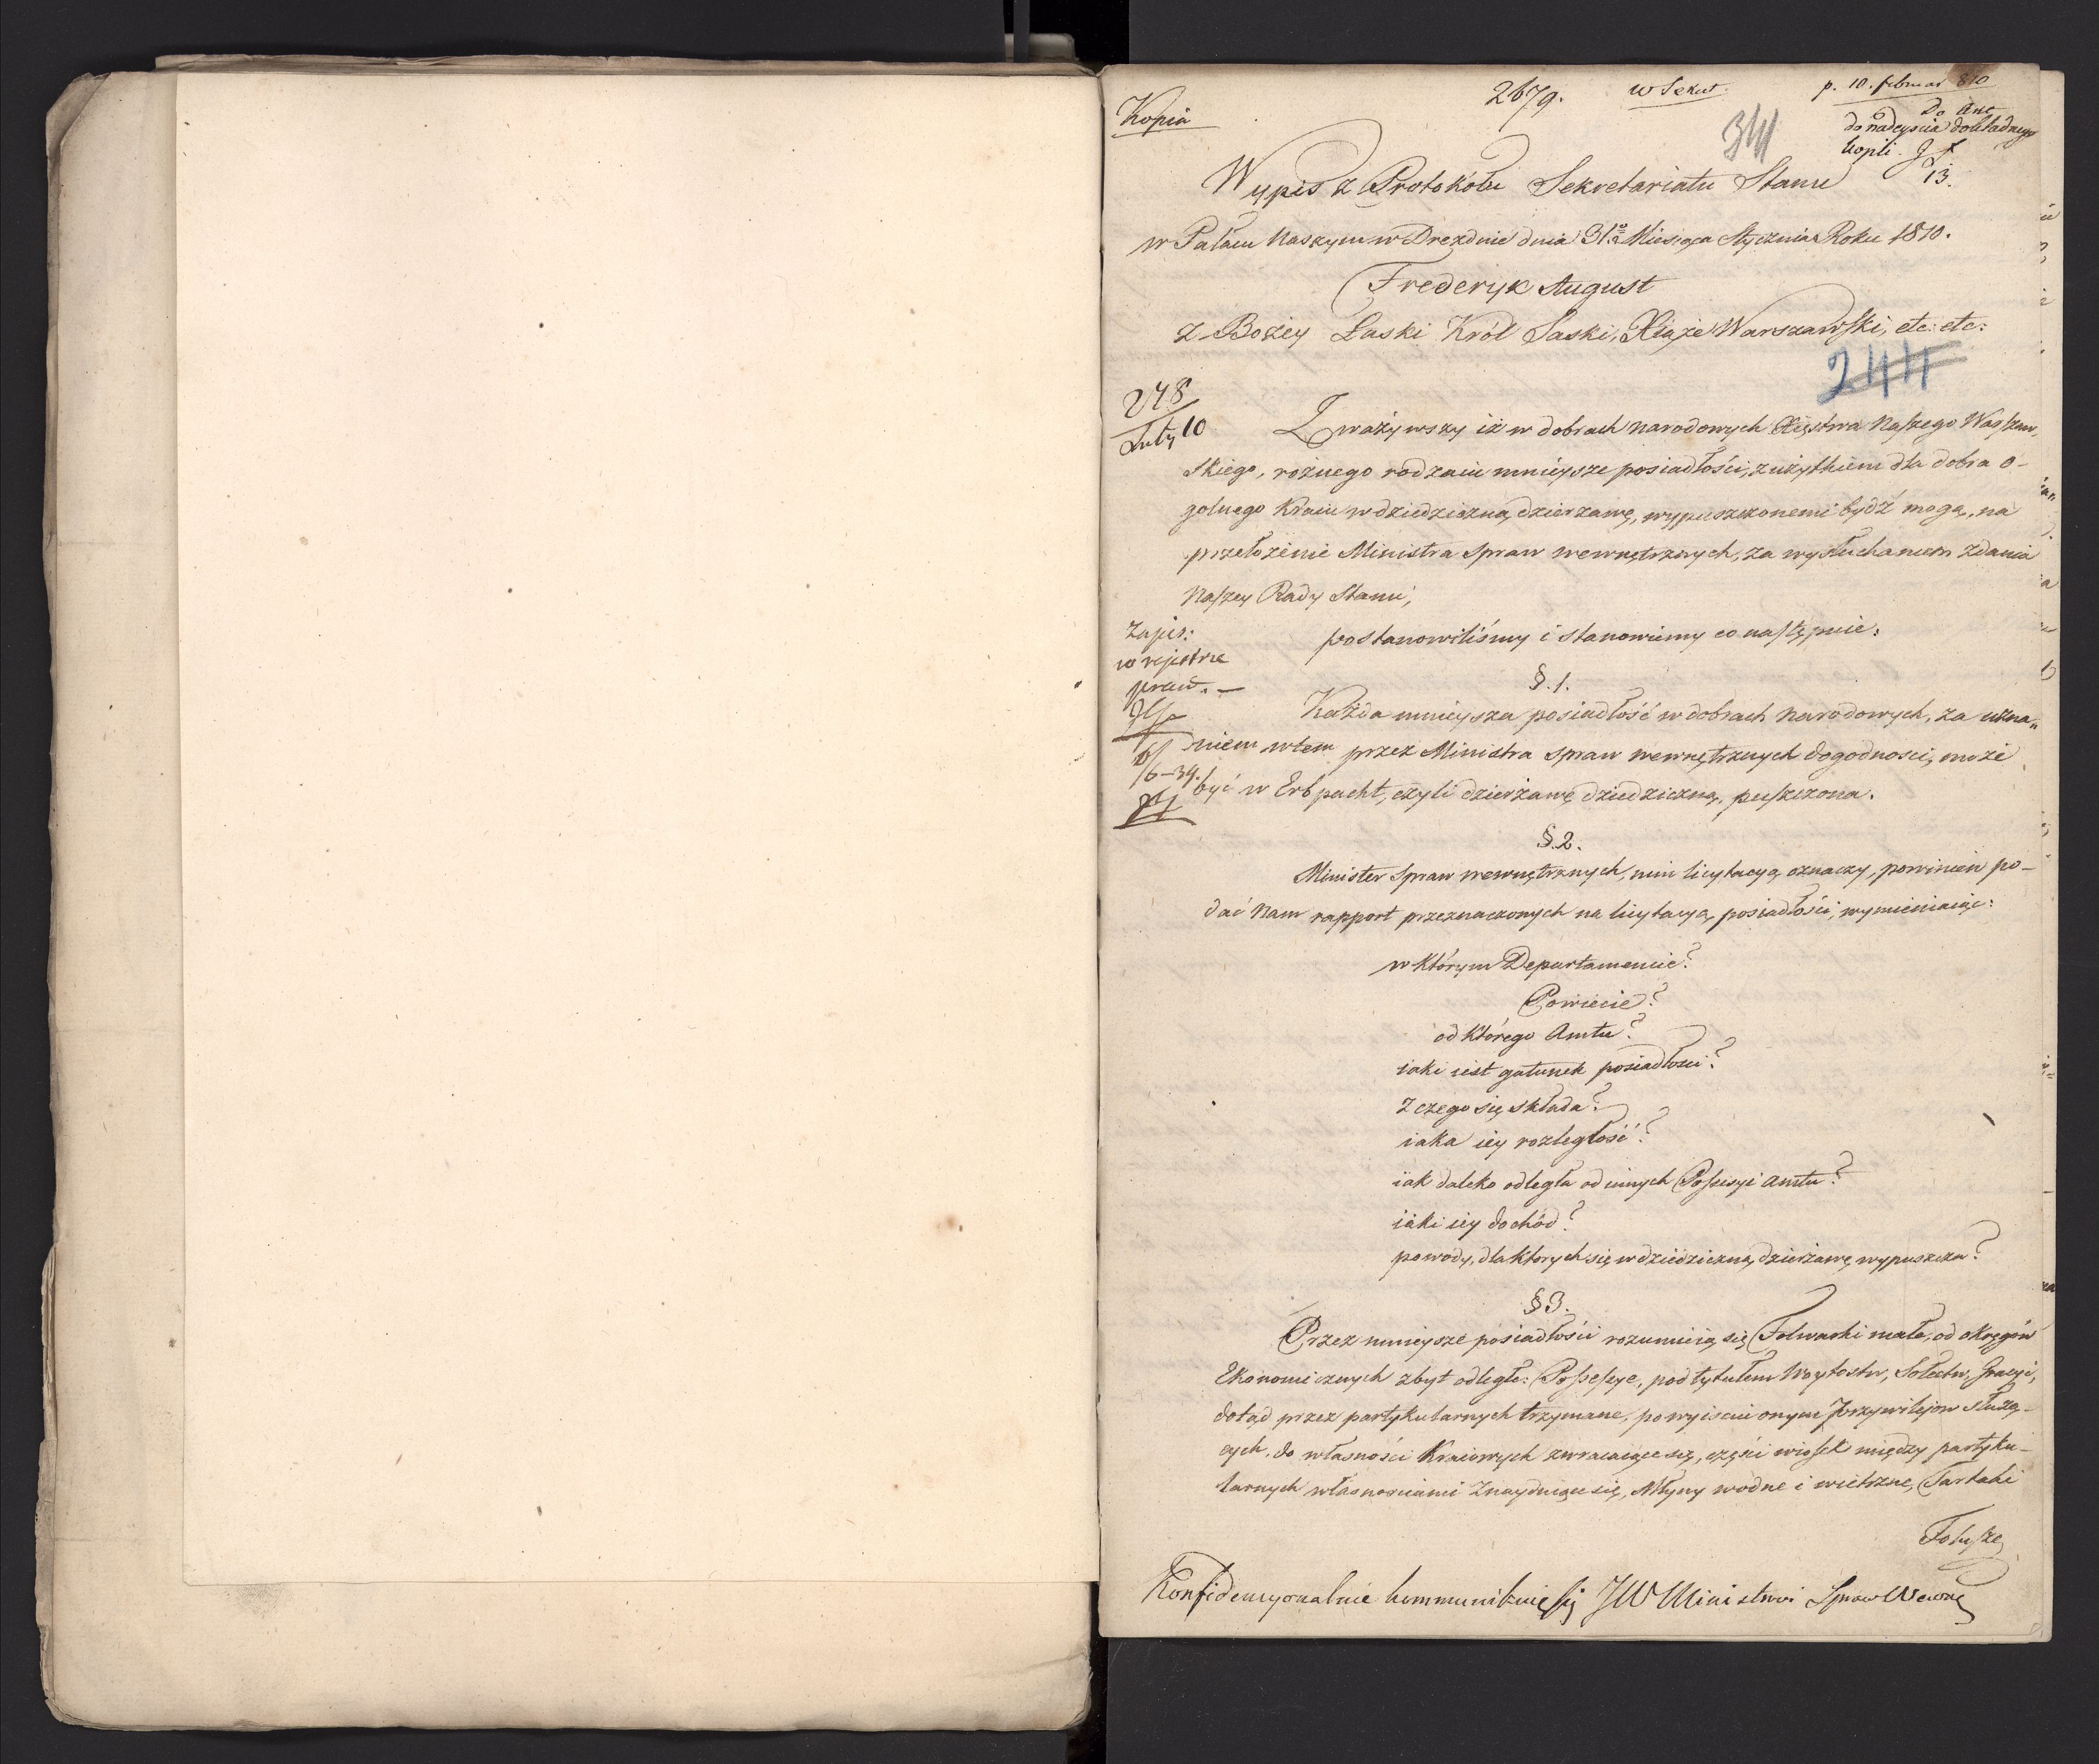 Kopia
2679.
w Sekret.
p. 10. februar 810
Do
do nadeyscia dokładnego
kopii.
13.
341
Wypis z Protokołu Sekretariatu Stanu
w Pałacu Naszym w Dreźdnie dnia 31go Miesiąca Stycznia Roku 1810.
Frederyk August
z Bożey Łaski Król Saski, Xiąże Warszawski, etc: etc:
244
248
Luty 10
Zważywszy iż w dobrach narodowych Xięstwa Naszego Warszaw,
skiego, rożnego rodzaiu mnieysze posiadłości, z użytkiem dla dobra o-
golnego Kraiu w dziedziczną dzierzawę, wypuszczonemi bydź mogą, na
przełożenie Ministra Spraw wewnętrznych, za wysłuchaniem zdania
Naszey Rady Stanu,
Zapis:
w rejestrze
praw. —
postanowiliśmy i stanowiemy co następuie:
§. 1.
Każda mnieysza posiadłość w dobrach narodowych, za uzna„
niem w tem przez Ministra spraw wewnętrznych dogodnosci, może
6/6-34.
być w Erbpacht, czyli dzierżawę dziedziczną, puszczona.
§. 2.
Minister Spraw wewnętrznych, nim licytacyą oznaczy, powinien po-
dać Nam rapport przeznaczonych na licytacyą posiadłości, wymieniaiąc:
w którym Departamencie?
Powiecie?
od którego Amtu?
iaki iest gatunek posiadłosci?
z czego się składa?
iaka iey rozległość?
iak daleko odległa od innych Possesyi Amtu?
iaki iey dochód?
powody, dla ktorych się w dziedziczną dzierżawę wypuszcza?
§ 3.
Przez mnieysze posiadłości rozumieią się Folwarki małe, od okręgów
Ekonomicznych zbyt odległe: Possessye, pod tytułem Woytostw, Sołectw, Gracyi,
dotąd przez partykularnych trzymane, po wyisciu onym Przywilejow służą-
cych, do własności Kraiowych zwracaiące się, części wiosek między partyku-
larnych własnosciami znayduiące się, Młyny wodne i wietrzne, Tartaki
Folusze,
Konfidencyonalnie kommunikuie się JW Ministrowi Spraw Wewnę